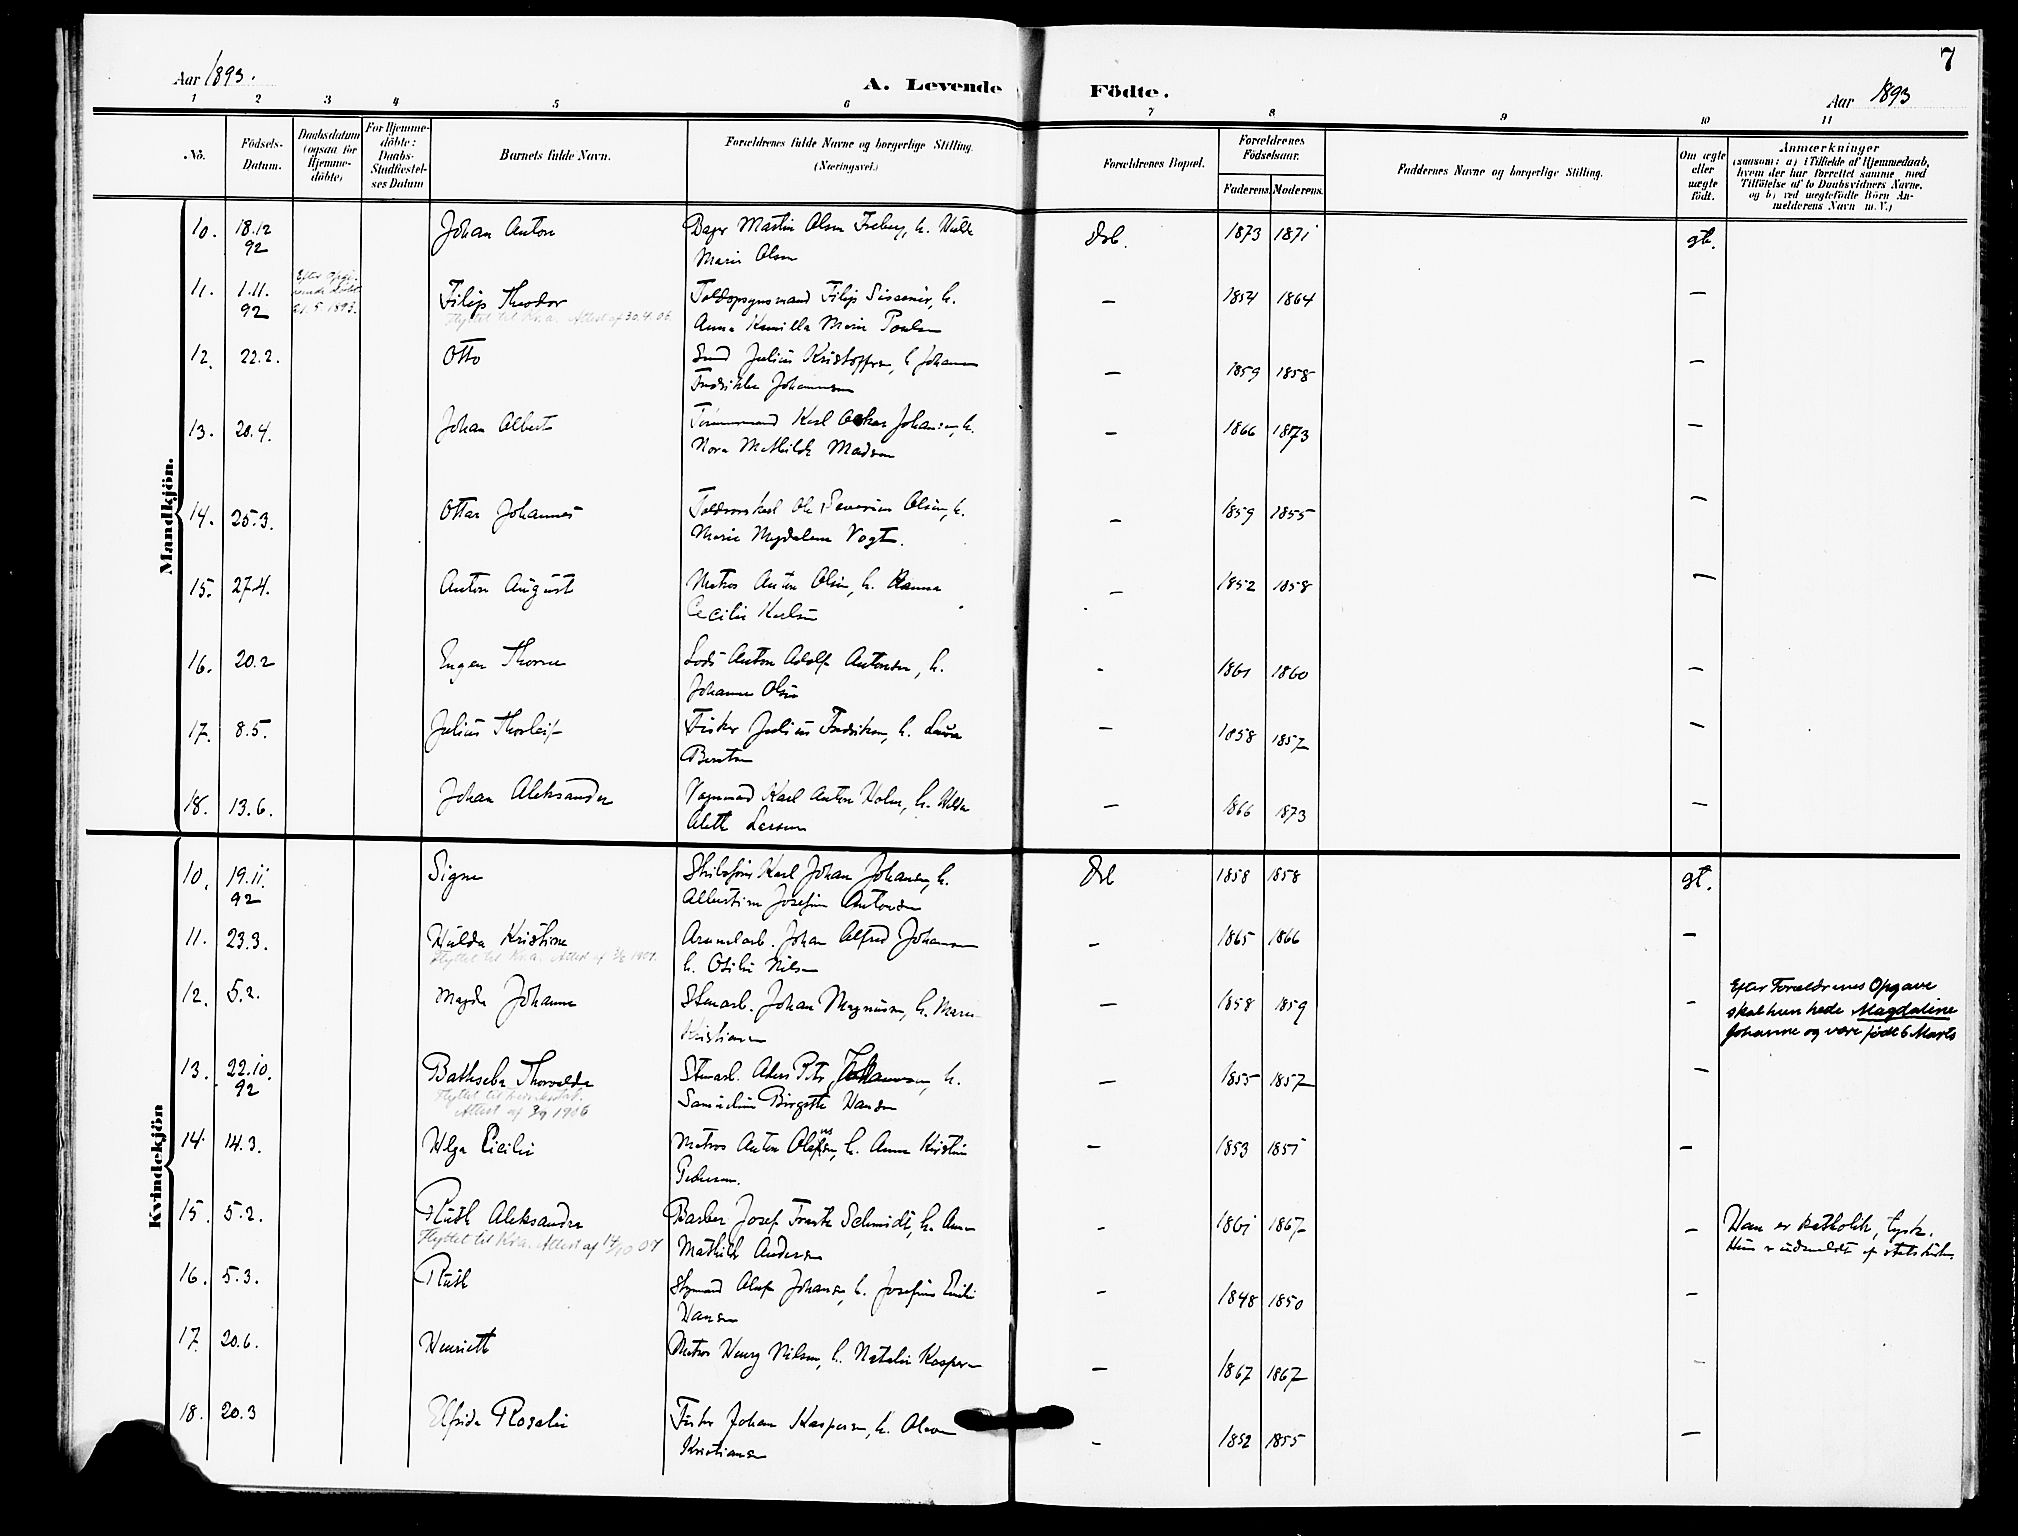 7
Aar 1893.
A. Levende
Födte.
Aar 1893
1 2 3 4 5 6 7 8 9 10 11
No.
Födsels-
Datum.
Daabsdatum
(ogsaa for
Hjemme-
döbte)
For Hjemme-
döbte:
Daabs-
Stadfæstel-
ses Datum
Barnets fulde Navn.
Forældrenes fulde Navne og borgerlige Stilling.
(Næringsvei.)
Forældrenes Bopæl.
Forældrenes
Födselsaar.
Faderens. Moderens.
Faddernes Navne og borgerlige Stilling.
Om ægte
eller
uægte
födt.
Anmærkninger
(saasom: a) i Tilfælde af Hjemmedaab,
hvem der har forrettet samme med
Tilföielse af to Daabsvidners Navne,
og b) ved uægtefödte Börn An-
melderens Navn m. V.)
Mandkjön.
10. 18.12 Johan Anton Martin Olsen h. 1873 1871 gt.
92 Marie Olsen
11. 1.11. Filip Theodor Toldopsynsmand Filip h. — 1854 1864 —
92 21.5.1893. Flyttet til Kr.a. Attest af 30.4.06. Anna Kamilla Marie
12. 22.2. Otto Julius Kristoffersen, h. Johanne — 1859 1858 —
Fredrikke Johannesen
13. 20.4. Johan Albert Tømmermand Karl Oskar Johansen, h. — 1866 1873 —
Nora Mathilde Madsen
14. 25.3. Ottar Johannes Ole Severin Olsen, h. — 1859 1855 —
Marie Magdalene Vogt.
15. 27.4. Anton August Matros Anton Olsen, h. Hanna — 1852 1858 —
Cecilie Karlsen
16. 20.2 Eugen Lods Anton Adolf Antonsen, h. - 1861 1860 —
Johanne Olsen
17. 8.5. Julius Thorleif Fisker Julius Fredriksen, h. — 1858 1857 —
Berntsen
18. 13.6. Johan Aleksander Vognmand Karl Anton Holm, h. Hilda — 1866 1873 —
Alette Larsen
Kvindekjön
10. 19.11. Signe Karl Johan Johansen, h. 1858 1858 gt.
92 Albertine Josefine Antonsen
11. 23.3. Hulda Kristine Johan Alfred Johansen — 1865 1866 —
Flyttet til Kr.a. Attest af 1907. h. Otilie Nilsen
12. 5.2. Magda Johanne Stenarb. Johan Magnusen, h. Maren — 1858 1859 -
Kristiansen
Efter Forældrenes Opgave
skal hun hede Magdaline
Johanne og være født 6 Marts
13. 22.10. Bathseba Thorvalda Stenarb. h. — 1855 1857 —
92 Flyttet til Fredrikstad. Birgitte Hansen
Attest af 3/9 1906
14. 14.3. Helga Cicilie Matros Anton h. Anna Kirstine — 1853 1851 —
Pedersen.
15. 5.2. Ruth Aleksandra Barber Josef Schmidt, h. - 1861 1867 —
Flyttet til Kr.a. Attest af 14/10 07 Mathilde Andersen
Han er katholik, tysk.
Hun er udmeldt af statskirk.
16. 5.3. Ruth Olaf Johansen, h. Josefine Emilie - 1848 1850 —
Hansen
17. 20.6. Henriette Matros Henry Nilsen, h. Natalie Kaspersen — 1867 1867 —
18. 20.3 Elfrida Rosalie Fisker Johan Kaspersen, h. - 1852 1855 —
Kristiansen